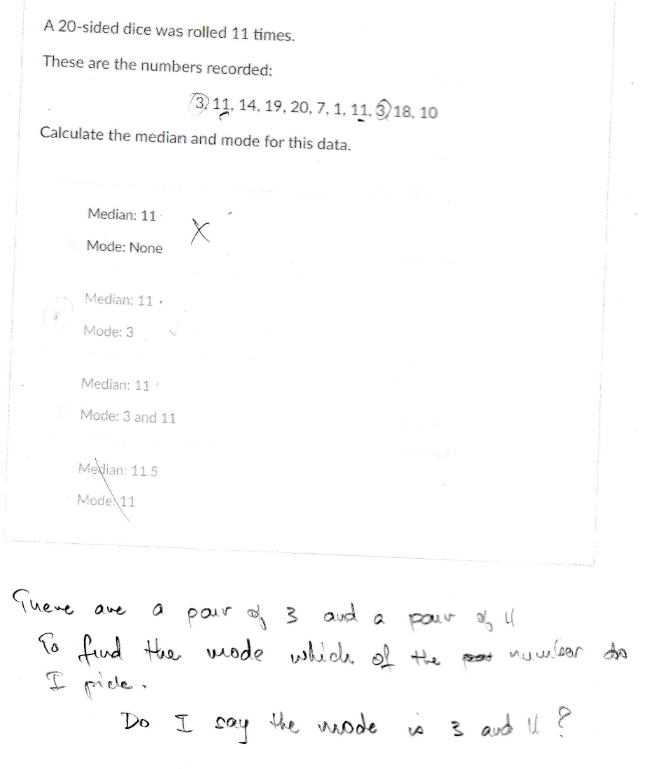 A 20-sided dice was rolled 11 times.
These are the numbers recorded:
3, 11, 14, 19, 20, 7, 1, 11, 3, 18, 10
Calculate the median and mode for this data.
Median: 11
Mode: None
Median: 11
Mode: 3
Median: 11
Mode: 3 and 11
Median: 11.5
Mode: 11
There are a pair of 3 and a pair of 11
To find the mode which of the number do
I pick.
Do I say the mode is 3 and 11 ?